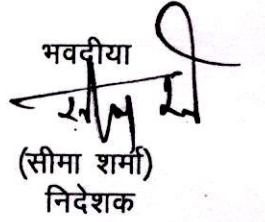 भवदीया
(सीमा शर्मा)
निदेशक